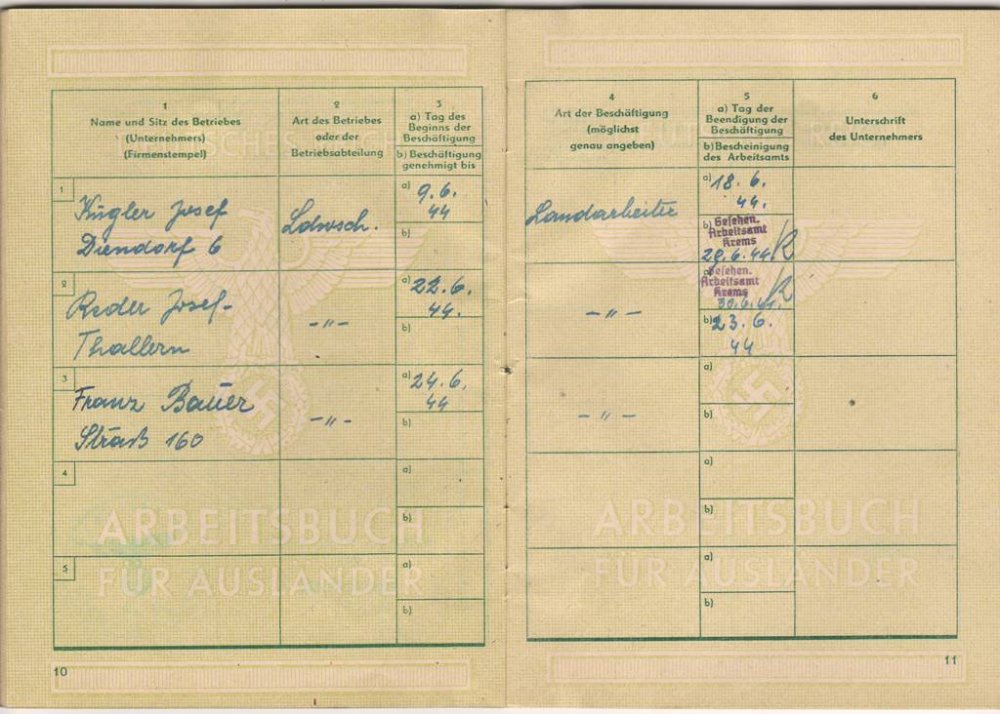 1
Name und Sitz des Betriebes
(Unternehmers)
(Firmenstempel)
2
Art des Betriebes
oder der
Betriebsabteilung
3
a) Tag des
Beginns der
Beschäftigung
b) Beschäftigung
genehmigt bis
1
Kugler Josef
Diendorf 6
Ldwsch.
a) 9.6.
44
b)
2
Reder Josef-
Thallern
-"-
a) 22.6.
44.
b)
3
Franz Bauer
Straß 160
-"-
a) 24.6.
44
b)
4
a)
b)
5
a)
b)
ARBEITSBUCH
FÜR AUSLÄNDER
10
4
Art der Beschäftigung
(möglichst
genau angeben)
5
a) Tag der
Beendigung der
Beschäftigung
b) Bescheinigung
des Arbeitsamts
6
Unterschrift
des Unternehmers
Landarbeiter
a) 18.6.
44.
b) Gesehen.
Arbeitsamt
Krems
29.6.44
-"-
a) Gesehen.
Arbeitsamt
Krems
30.6.44.
b) 23.6.
44
-"-
a)
b)
a)
b)
a)
b)
ARBEITSBUCH
FÜR AUSLÄNDER
11